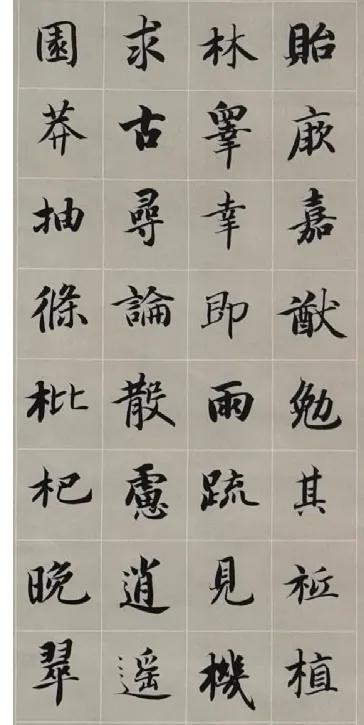 貽厥嘉猷勉其祗植
林皋幸即兩疏見機
求古尋論散慮逍遥
園莽抽條枇杷晚翠